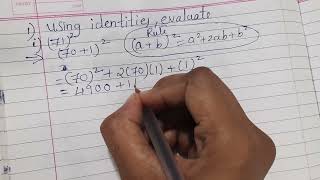 i) Using identities, evaluate
i) (71)²
→ (70+1)²
Rule
(a+b)² = a²+2ab+b²
= (70)² + 2(70)(1) + (1)²
= 4900 + 1